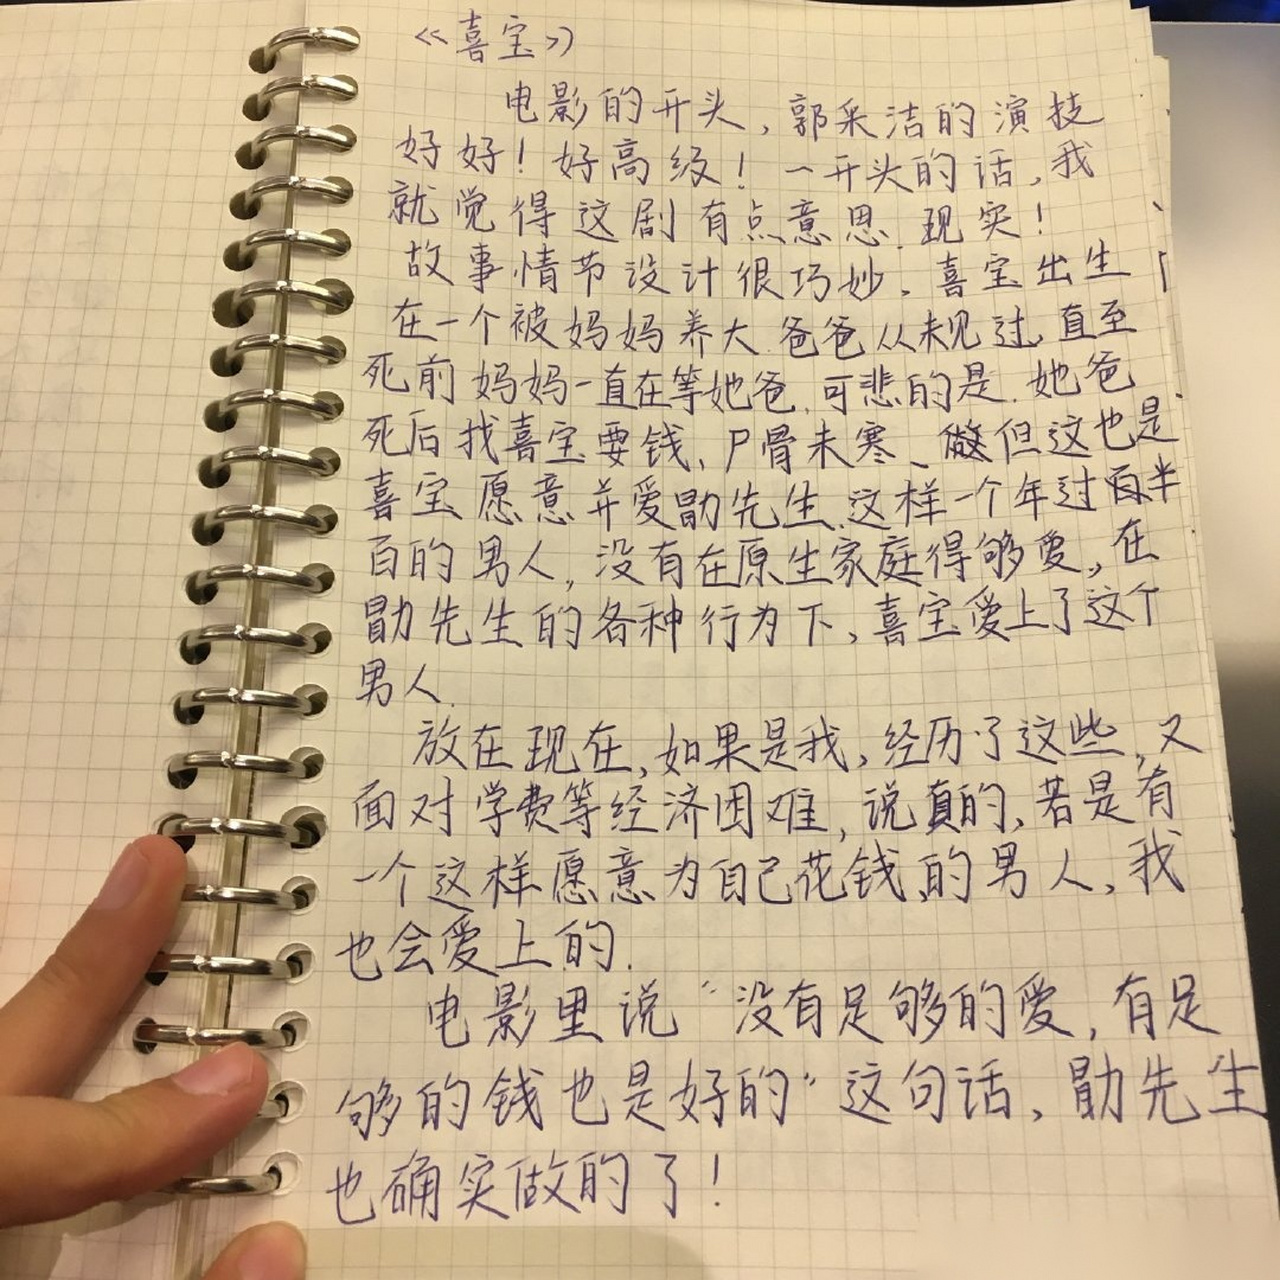 《喜宝》
电影的开头,郭采洁的演技
好好!好高级!一开头的话,我
就觉得这剧有点意思.现实!
故事情节设计很巧妙,喜宝出生
在一个被妈妈养大.爸爸从未见过,直至
死前妈妈一直在等她爸.可悲的是.她爸
死后找喜宝要钱、尸骨未寒、但这也是
喜宝愿意并爱勖先生.这样一个年过半
百的男人,没有在原生家庭得够爱,在
勖先生的各种行为下,喜宝爱上了这个
男人.
放在现在,如果是我,经历了这些,又
面对学费等经济困难,说真的,若是有
一个这样愿意为自己花钱的男人,我
也会爱上的.
电影里说“没有足够的爱,有足
够的钱也是好的”这句话,勖先生
也确实做的了!